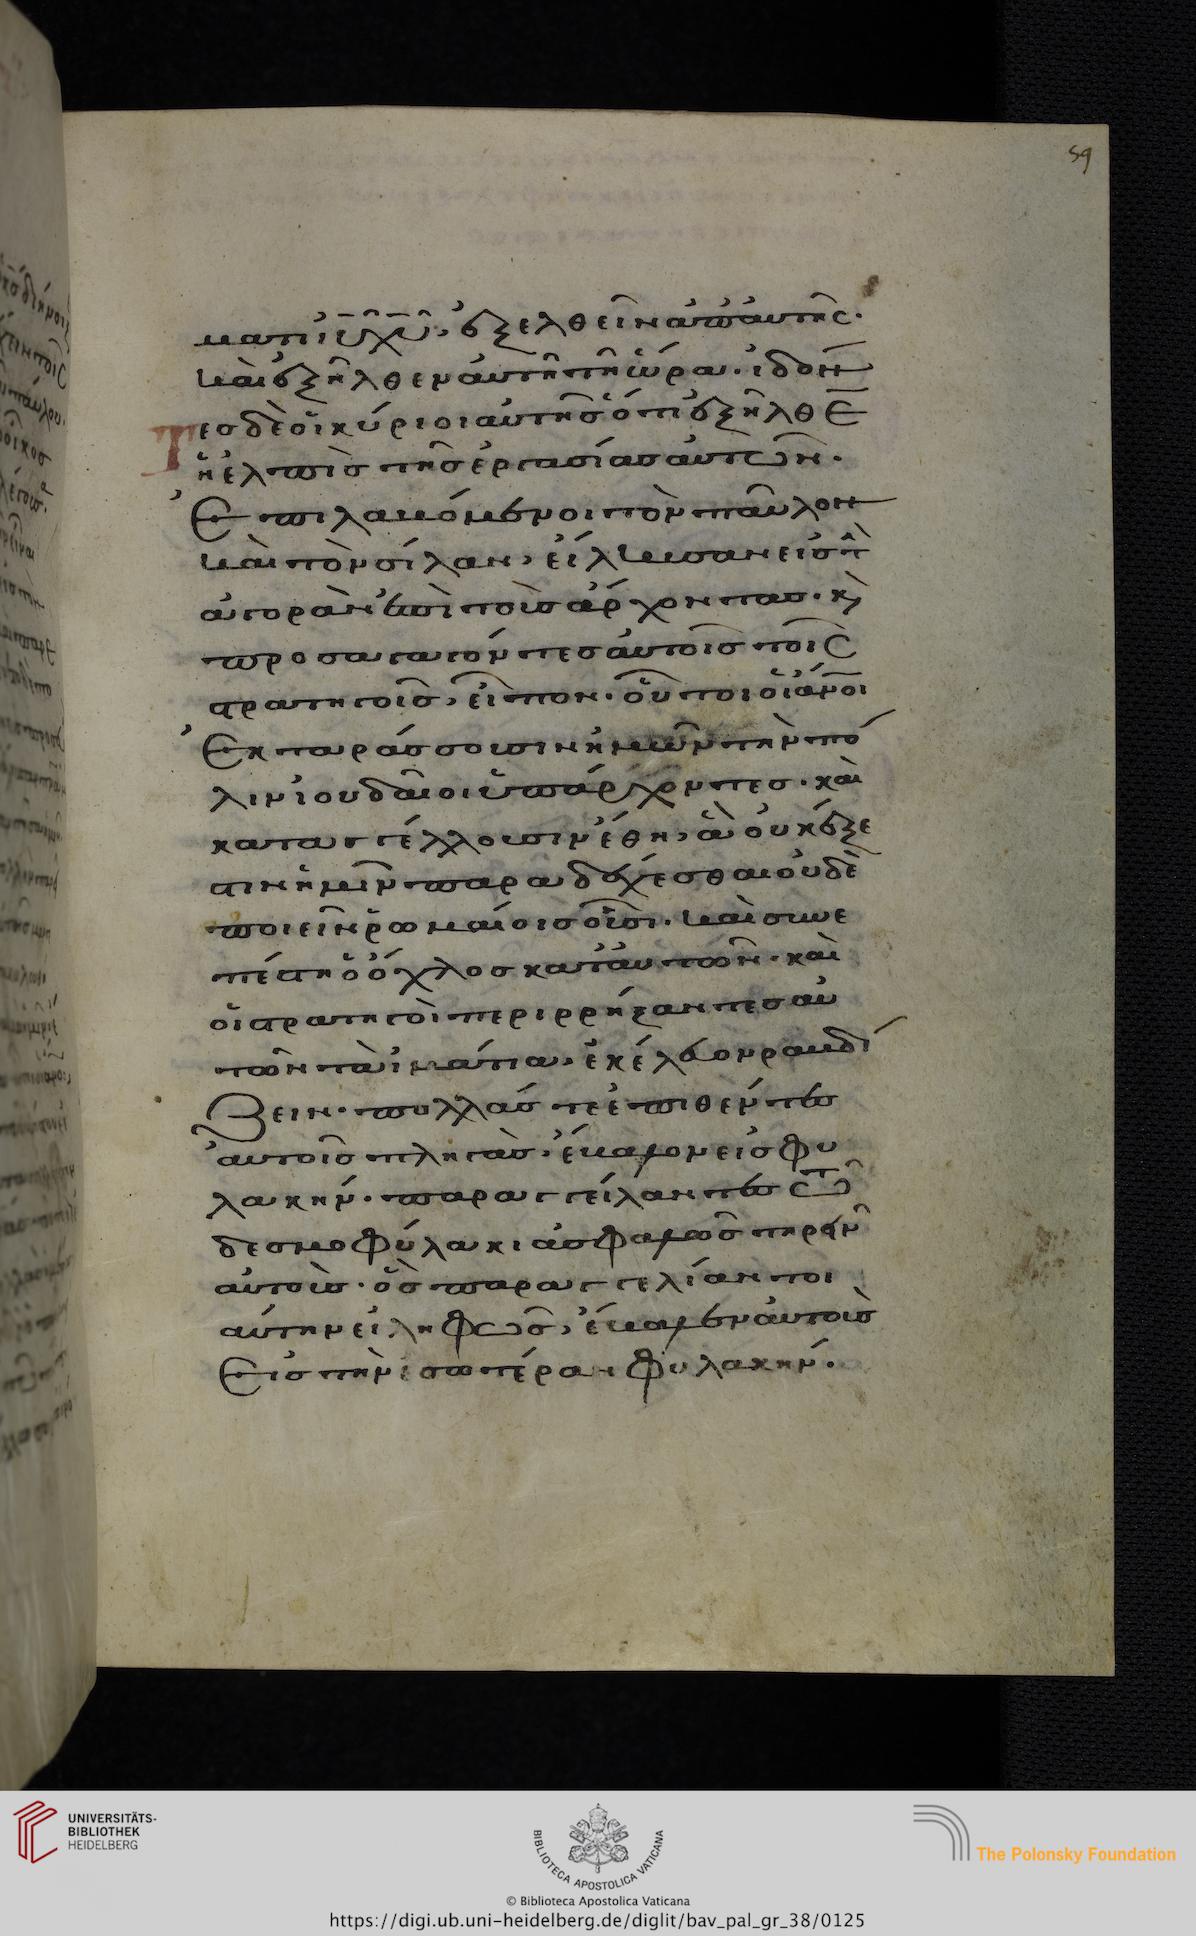 59
ματι ἰῦ χῦ, ἐξελθεῖν ἀπ αὐτῆς.
καὶ ἐξῆλθεν αὐτῇ τῇ ὥρα. ἰδόν
τες δὲ οἱ κύριοι αὐτῆς ὅτι ἐξῆλθεν
ἡ ἐλπὶς τῆς ἐργασίας αὐτῶν.
Ἐπιλαβόμενοι τὸν παῦλον
καὶ τὸν σίλαν, εἵλκυσαν εἰς τὴν
ἀγορὰν ἐπὶ τοὺς ἄρχοντας. κὶ
προσαγαγόντες αὐτοὺς τοῖς
στρατηγοῖς, εἶπον. οὗτοι οἱ ἄνοι
Ἐκταράσσουσιν ἡμῶν τὴν πό
λιν ἰουδαῖοι ὑπάρχοντες. καὶ
καταγγέλλουσιν ἔθη, ἃ οὐκ ἔξε
στιν ἡμῖν παραδέχεσθαι οὐδὲ
ποιεῖν ῥωμαίοις οὖσι. καὶ συνε
πέστη ὁ ὄχλος κατ αὐτῶν. καὶ
οἱ στρατηγοὶ περιρρήξαντες αὐ
τῶν τὰ ἱμάτια, ἐκέλευον ραβδί
ζειν. πολλάς τε ἐπιθέντες
αὐτοῖς πληγὰς, ἔβαλον εἰς φυ
λακήν. παραγγείλαντες τῶ
δεσμοφύλακι ἀσφαλῶς τηρεῖν
αὐτούς. ὃς παραγγελίαν τοι
αύτην εἰληφὼς, ἔβαλεν αὐτοὺς
Εἰς τὴν ἐσωτέραν φυλακήν.
UNIVERSITÄTS-
BIBLIOTHEK
HEIDELBERG
BIBLIOTECA APOSTOLICA VATICANA
The Polonsky Foundation
© Biblioteca Apostolica Vaticana
https://digi.ub.uni-heidelberg.de/diglit/bav_pal_gr_38/0125